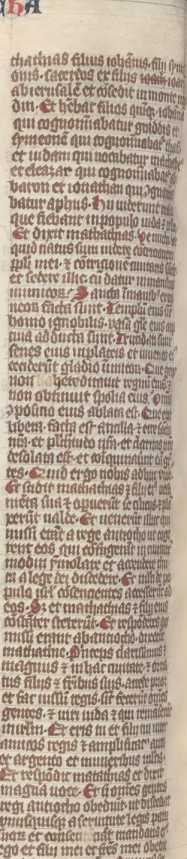 thathias filius iohãnis. filij sym
onis. sacerdos ex filijs ioarim
ab ierusalẽ et cõsedit in monte mo
din. Et hẽbat filios quinq; iohãnẽ
qui cognominabatur gaddis et
symeonẽ qui cognominabatur thasi
et iudam qui vocabatur machabe
et eleazar qui cognominabatur a
baron et ionathan qui cognomi
batur aphus. Hij viderunt mala
que fiebant in populo iuda et
Et dixit mathathias. Ve michi
quid natus sum videre cõtritionem
ipli mei. et cõtricionẽ ciuitatis
et sedere illic cũ datur in manibus
inimicoꝝ. Sancta in manu extra
neoꝝ facta sunt. Templũ eius sic
homo ignobilis. vasa glẽ eius cap
tiua adducta sunt. Trucidati sunt
senes eius in plateis et iuuenes ei
ceciderũt gladio inimicoꝝ. Que gens
non hereditauit regnũ eius et
non obtinuit spolia eius. Omnis
cõpositio eius ablata est. Que erat
libera. facta est ancilla. et ecce sc̃a
nr̃a. et pulcritudo nr̃a. et claritas nr̃a
desolata est. et coinquinauerũt ea gẽ
tes. Quid ergo nobis adhuc viue
Et scidit mathathias et filij ei⁹ vesti
menta sua et operuerũt se cilicijs et plã
xerũt valde. Et venerũt illuc qui
missi erant a rege antiocho ut coge
rent eos qui confugerãt in ciuitatẽ
modin ymolare et accendere thu
ra a lege dei discedere. Et multi de po
pulo isrl̃ cõsencientes accesserũt ad
eos. Sed mathathias et filij eius
cõstanter steterũt. Et respõdentes qui
missi erant ab antiocho. dixerũt
mathathie. Princeps clarissimus et
magnus es in hac ciuitate. et orna
tus filijs et fratribus tuis. accede prior
et fac iussũ regis. sicut fecerũt omnes
gentes. et viri iuda et qui remãserũt
in ierl̃m. Et eris tu et filij tui inter
amicos regis et amplificatus auro
et argento et muneribus multis.
Et respõdit matathias et dixit
magna voce. Et si omnes gentes
regi antiocho obediũt. ut discedat
vnusquisq; a seruitute legis patrũ
suoꝝ et consenciat mandatis eius
ego et filij mei et fratres mei obediẽ